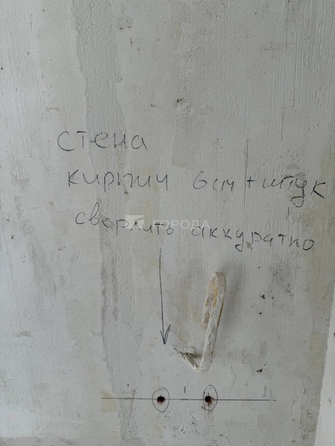 стена
кирпич 6см+штук
сверлить аккуратно
ГОРОДА